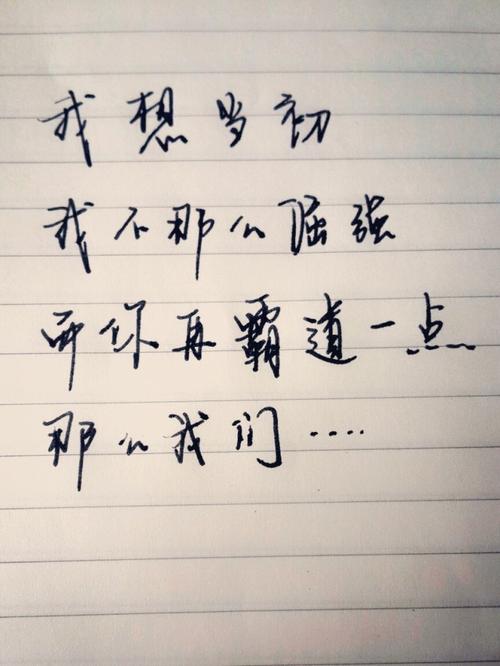 我想当初
我不那么倔强
而你再霸道一点
那么我们·····